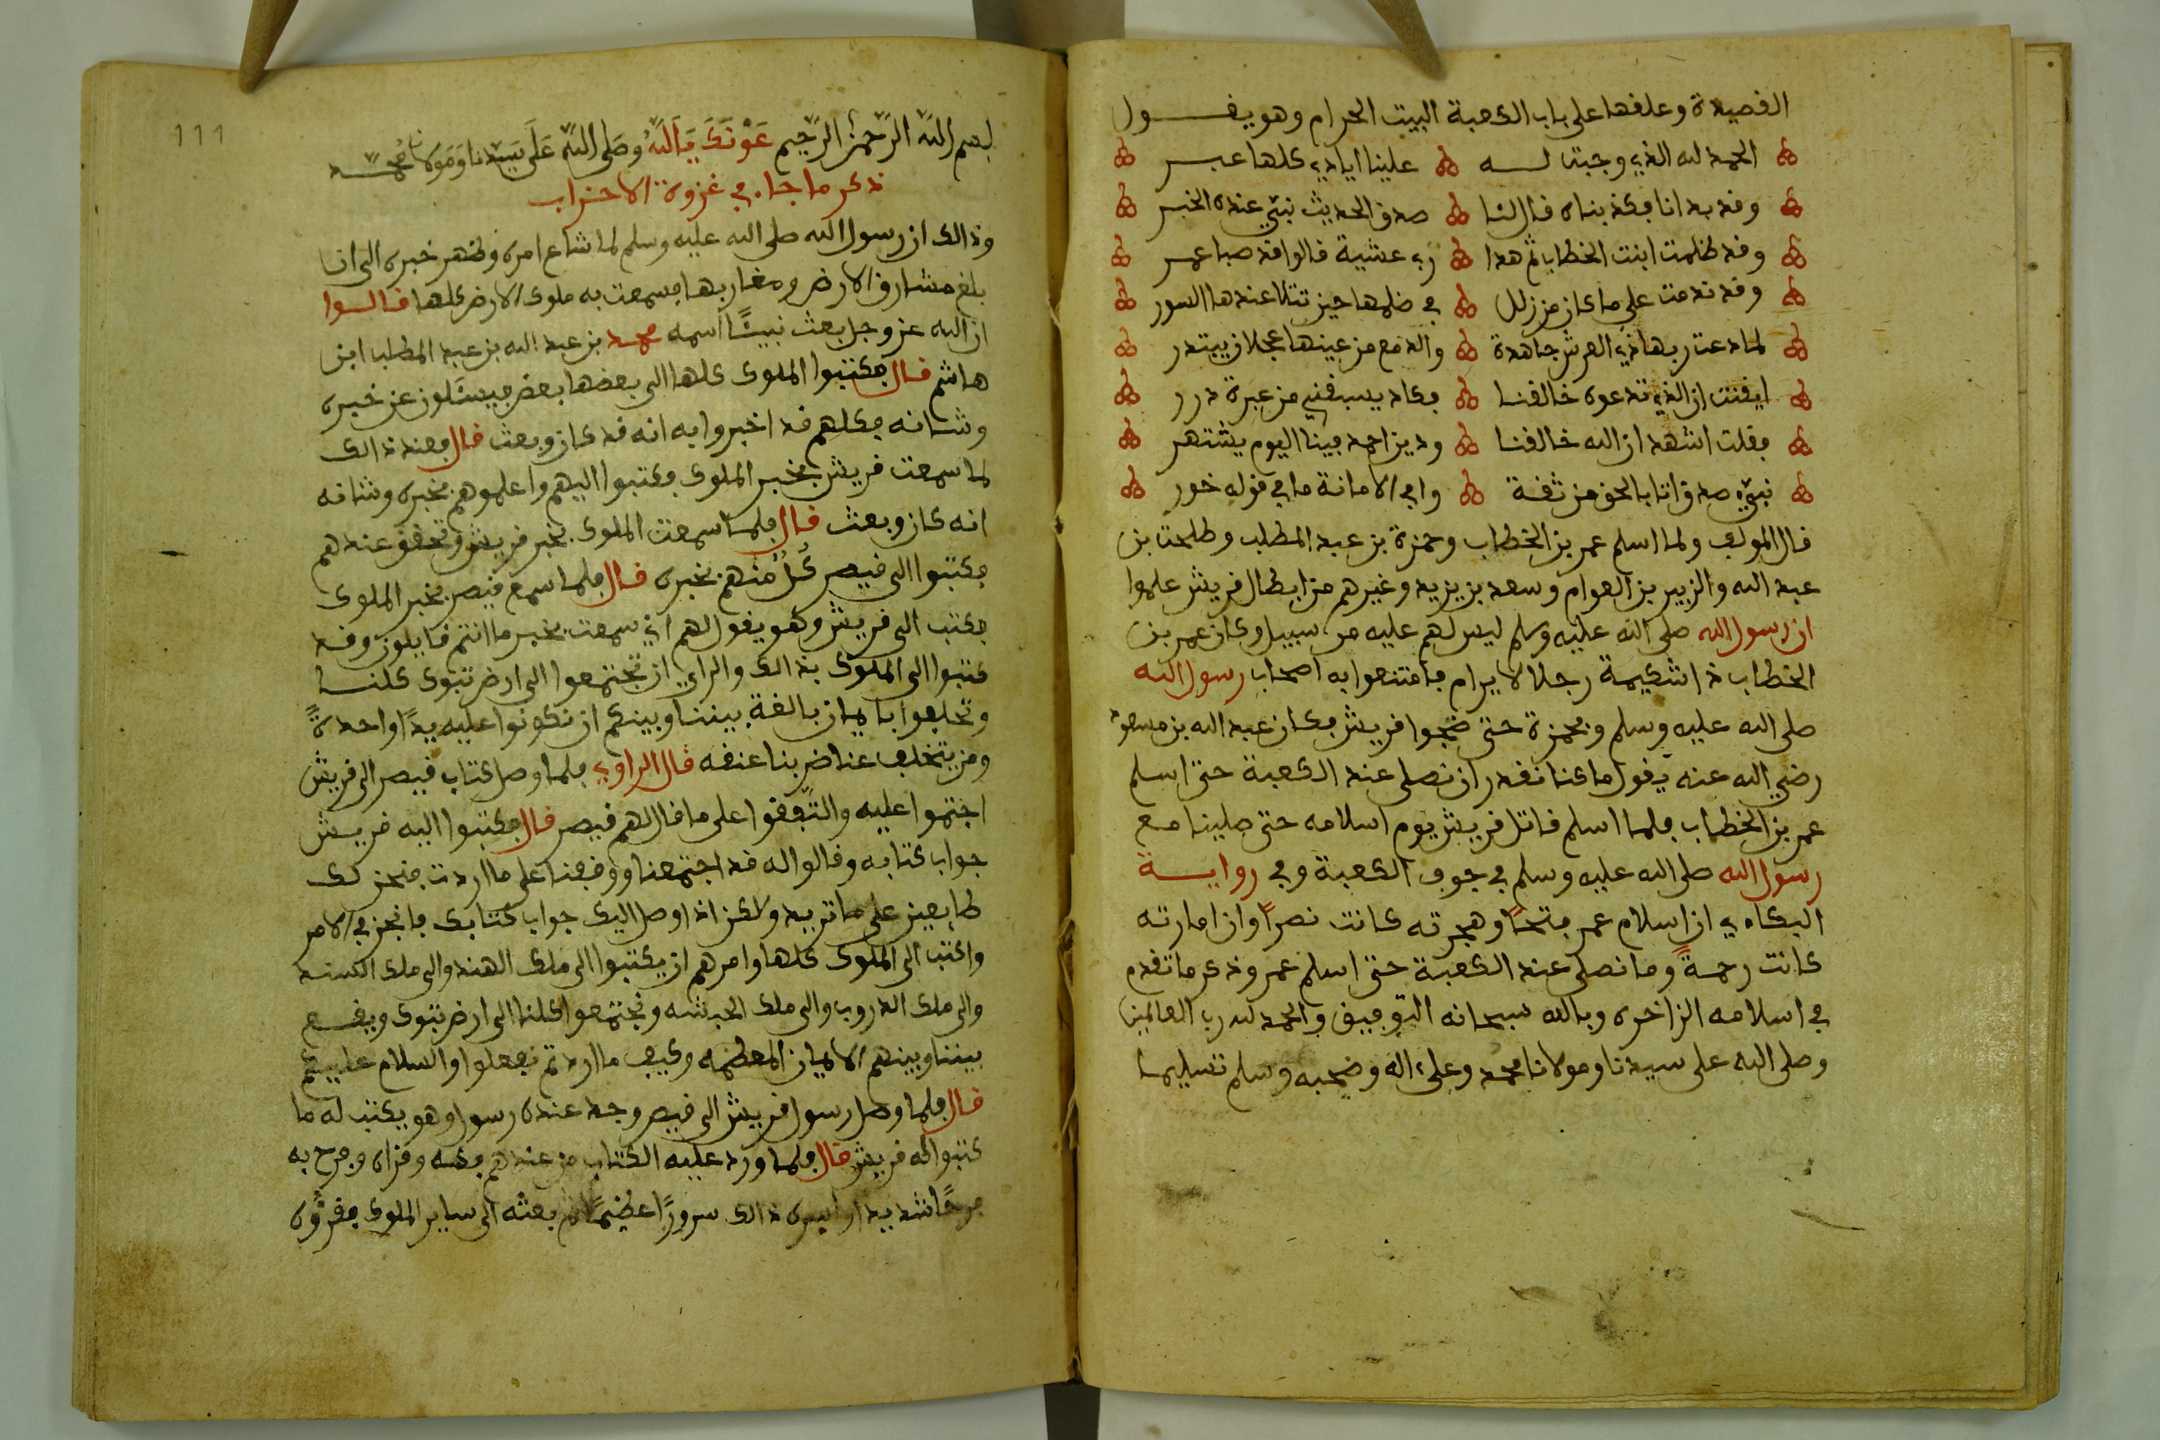 القصيدة وعلقها على باب الكعبة البيت الحرام وهو يقـــول
الحمد لله الذي وجبت لـــه علينا ايادي كلها عبـــر
وقد بدانا فكذبناه قال لنا صدق الحديث نبي عنده الخبر
وقد ظلمت ابنت الخطاب ثم هدا ربي عشية قالوا قد صبا عمر
وقد ندمت على ما كان من زلل في ظلمها حين تتلا عندها السور
لما دعت ربها ذي العرش جاهدة والدمع من عينها عجلان يبتدر
ايقنت ان الذي تدعوه خالقنا فكاد يسبقني من عبرة درر
فقلت اشهد ان الله خالقنا ودين احمد فينا اليوم يشتهر
نبي صدق اتا بالحق من ثقة وافي الامانة ما في قوله خور
قال المولف ولما اسلم عمر بن الخطاب وحمزة بن عبد المطلب وطلحت بن
عبد الله والزبير بن العوام وسعد بن يزيد وغيرهم من ابطال قريش علموا
ان رسول الله صلى الله عليه وسلم ليس لهم عليه من سبيل وكان عمر بن
الخطاب ذا شكيمة رجلا لا يرام فامتنعوا به اصحاب رسول الله
صلى الله عليه وسلم وبحمزة حتى ضجوا قريش فكان عبد الله بن مسعود
رضي الله عنه يقول ما كنا نقدر ان نصلى عند الكعبة حتى اسلم
عمر بن الخطاب فلما اسلم قاتل قريش يوم اسلامه حتى صلينا مع
رسول الله صلى الله عليه وسلم في جوف الكعبة وفي روايـــة
البكاءي ان اسلام عمر فتحًا وهجرته كانت نصرًا وان امارته
كانت رحمةً وما نصلى عند الكعبة حتى اسلم عمر وذكر ما تقدم
في اسلامه الزاخره وبالله سبحانه التوفيق والحمد لله رب العالمين
وصلى الله على سيدنا ومولانا محمد وعلى اله وصحبه وسلم تسليما
111
بسم الله الرحمن الرحيم عونك يا الله وصلى الله على سيدنا ومولانا محمـــد
ذكر ما جاء في غزوة الاحزاب
وذالك ان رسول الله صلى الله عليه وسلم لما شاع امره وظهر خبره الى ان
بلغ مشارق الارض ومغاربها فسمعت به ملوك الارض كلها قالـــوا
ان الله عز وجل بعث نبيئًا اسمه محمد بن عبد الله بن عبد المطلب ابن
هاشم قال فكتبوا الملوك كلها الى بعضها بعض فيسئلون عن خبره
وشانه فكلهم قد اخبروا به انه قد كان وبعث قال فعند ذالك
لما سمعت قريش بخبر الملوك فكتبوا اليهم واعلموهم بخبره وشانه
انه كان وبعث قال فلما سمعت الملوك بخبر قريش وتحقق عندهم
فكتبوا الى قيصر كُلٌ مّنهم بخبره قال فلما سمع قيصر بخبر الملوك
فكتب الى قريش وهو يقول لهم اني سمعت بخبر ما انتم قايلون وقد
كتبوا الى الملوك بذالك والراي ان تجتمعوا الى ارض تبوك كلنـــا
وتحلفوا بايمان بالغة بيننا وبينكم ان نكونوا عليه يدًا واحدةً
ومن يتخلف عنا ضربنا عنقه قال الراوي فلما وصل كتاب قيصر الى قريش
اجتمعوا عليه والتّفقوا على ما قال لهم قيصر قال فكتبوا اليه قريـــش
جواب كتابه وقالوا له قد اجتمعنا ووقفنا على ما اردت فنحن لك
طايعين على ما تريد ولاكن اذا وصل اليك جواب كتابك فانجز في الامر
واكتب الى الملوك كلها وامرهم ان يكتبوا الى ملك الهند والى ملك السند
والى ملك الدروب والى ملك الحبشه ونجتمعوا كلنا الى ارض تبوك ويقـــع
بيننا وبينهم الايمان المعظمه وكيف ما اردتم نفعلوا والسلام عليكم
قال فلما وصل رسول قريش الى قيصر وجد عنده رسول وهو يكتب له ما
كتبوا له قريش قال فلما ورد عليه الكتاب من عندهم فكه وقراه وفرح به
فرحًا شديدا وسره ذالك سرورًا عظيمًا ثم بعثه الى ساير الملوك فقرؤه